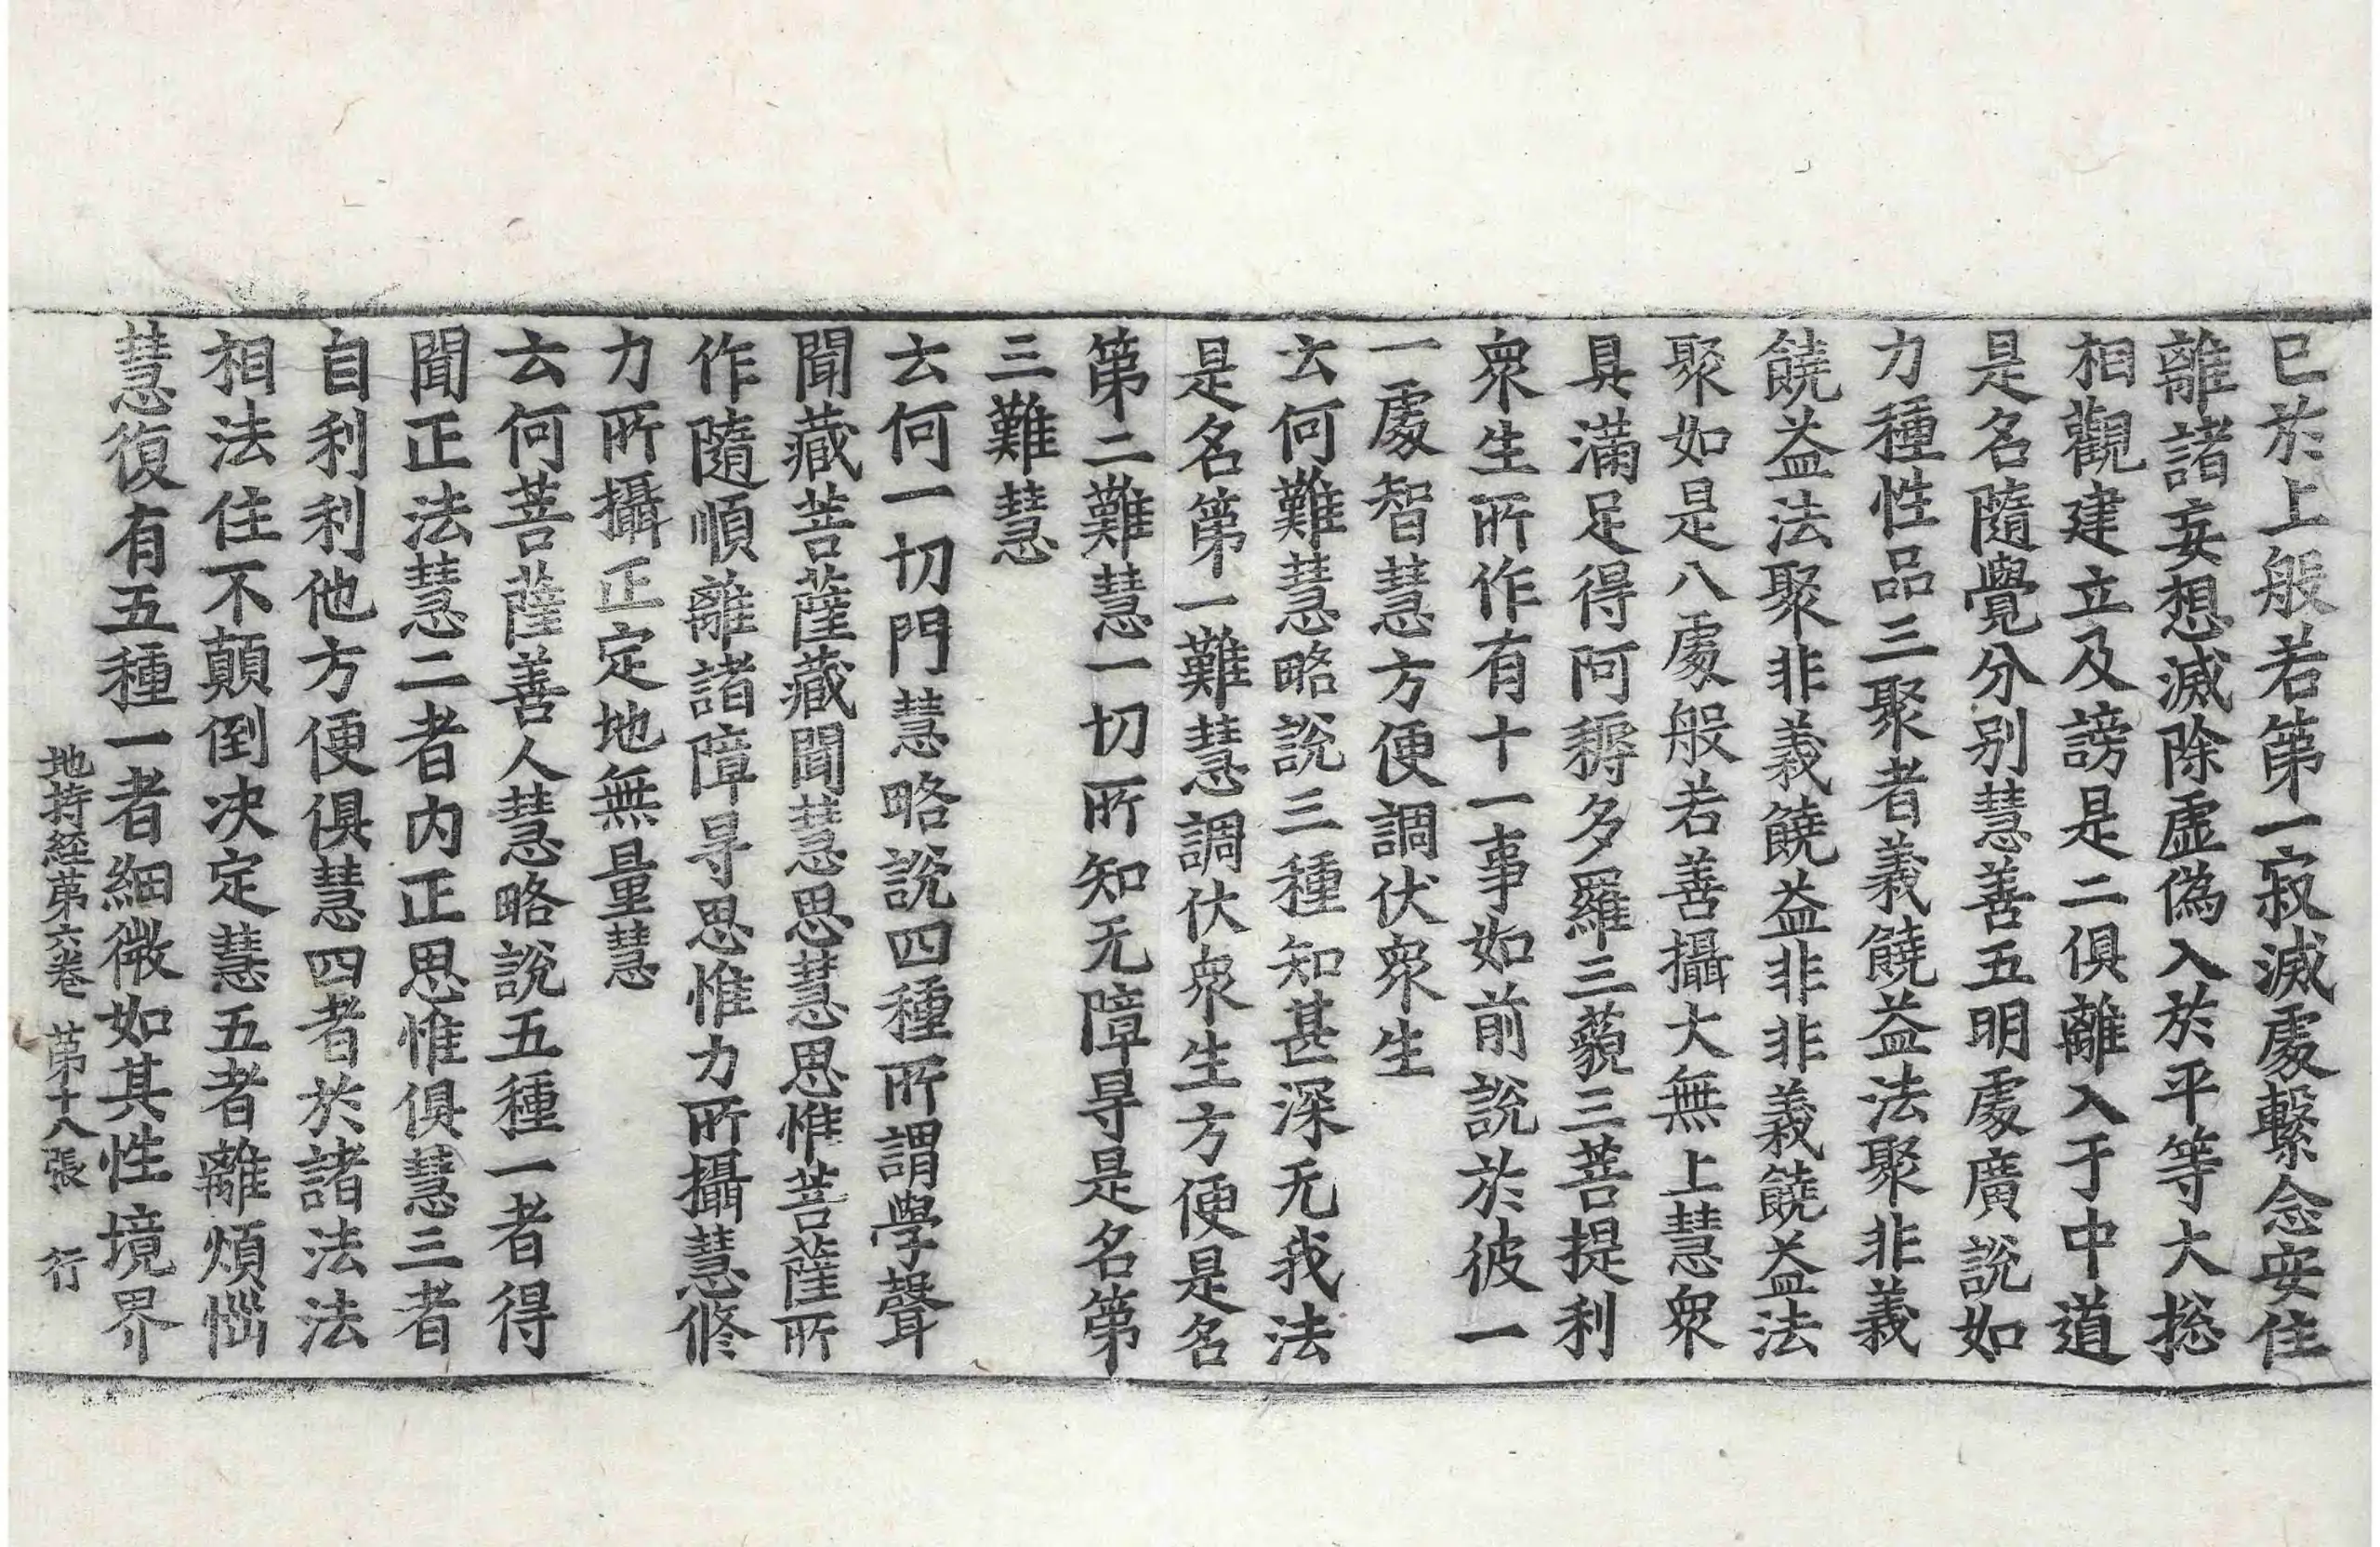 已於上般若第一寂滅處繫念安住
離諸妄想滅除虛偽入於平等大捴
相觀建立及謗是二俱離入于中道
是名隨覺分別慧善五明處廣說如
力種性品三聚者義饒益法聚非義
饒益法聚非義饒益非非義饒益法
聚如是八處般若善攝大無上慧衆
具滿足得阿耨多羅三藐三菩提利
衆生所作有十一事如前說於彼一
一處智慧方便調伏衆生
云何難慧略說三種知甚深无我法
是名第一難慧調伏衆生方便是名
第二難慧一切所知无障㝵是名第
三難慧
云何一切門慧略說四種所謂學聲
聞藏菩薩藏聞慧思慧思惟菩薩所
作隨順離諸障㝵思惟力所攝慧修
力所攝正定地無量慧
云何菩薩善人慧略說五種一者得
聞正法慧二者內正思惟俱慧三者
自利利他方便俱慧四者於諸法法
相法住不顛倒决定慧五者離煩惱
慧復有五種一者細微如其性境界
地持経第六卷 第十八張 行